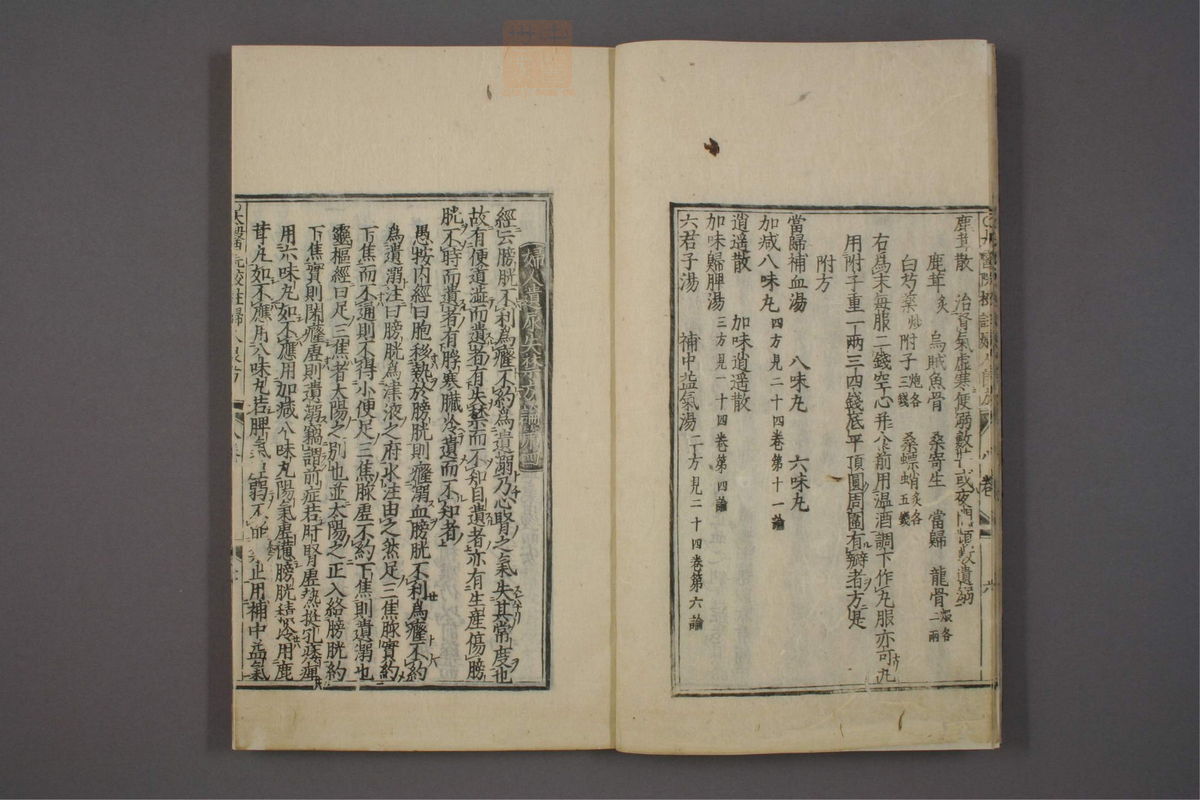 鹿茸散　治腎氣虛寒便溺數甚或夜間頻數遺溺
鹿茸炙　烏賊魚骨　桑寄生　當歸　龍骨煅各一兩
白芍藥炒　附子炮各三錢　桑螵蛸炙各五錢
右為末每服二錢空心并食前用溫酒調下作丸服亦可丸
用附子重一兩三四錢底平頂圓周圍有瓣者方是
附方
當歸補血湯　八味丸　六味丸
加減八味丸四方見二十四卷第十一論
逍遥散　加味逍遥散
加味歸脾湯三方見一十四卷第四論
六君子湯　補中益氣湯二方見二十四卷第六論
婦人遺尿失禁方論第四
經云膀胱不利為癃不約為遺溺乃心腎之氣失其常度也
故有便道澁而遺者有失禁而不知自遺者亦有生産傷膀
胱不時而遺者有脬寒臟冷遺而不知者
愚按內經曰胞移熱於膀胱則癃溺血膀胱不利為癃不約
為遺溺注曰膀胱為津液之府水注由之然足三焦脉實約
下焦而不通則不得小便足三焦脉虛不約下焦則遺溺也
靈樞經曰足三焦者太陽之別也並太陽之正入絡膀胱約
下焦實則閉癃虛則遺溺竊謂前症若肝腎虛熱挺孔痿痺
用六味丸如不應用加減八味丸陽氣虛憊膀胱積冷用鹿
茸丸如不應用八味丸若脾氣虛弱不能 止用補中益氣
太醫院校註婦人良方　八卷